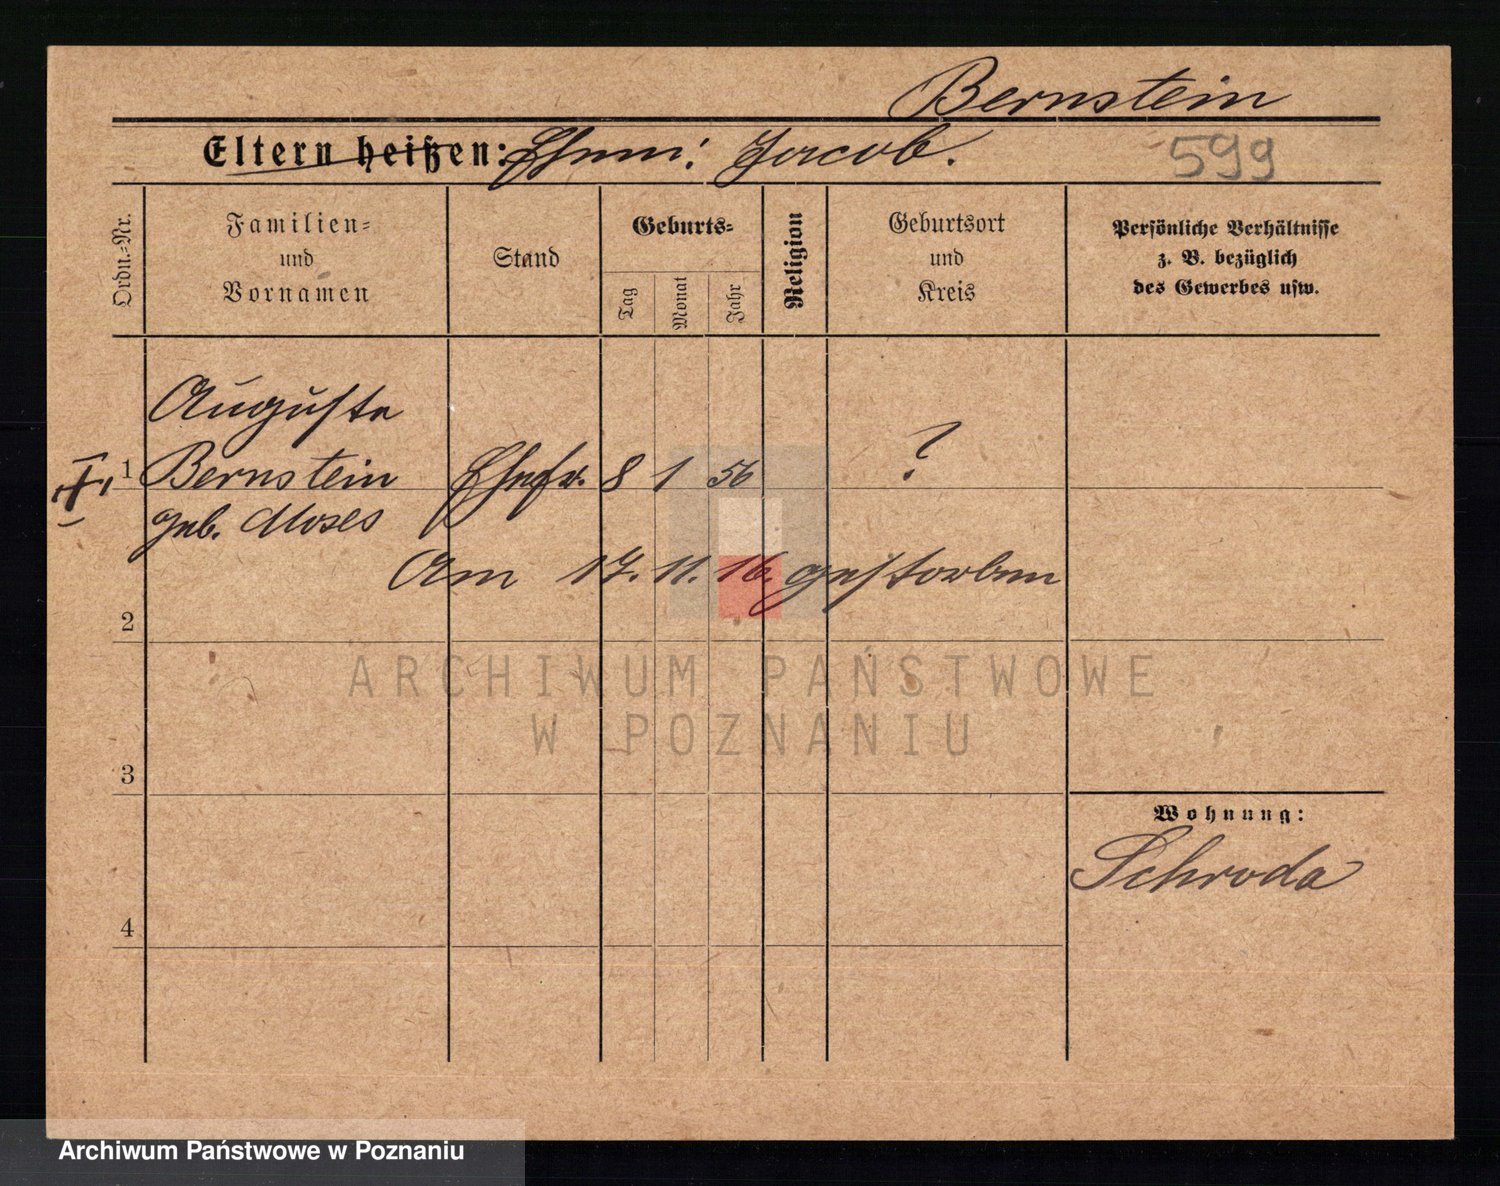 Bernstein
Eltern heißen: Ehem: Jacob.
599
Ordn.=Nr.
Familien=
und
Vornamen
Stand
Geburts=
Tag
Monat
Jahr
Religion
Geburtsort
und
Kreis
Persönliche Verhältnisse
z. B. bezüglich
des Gewerbes usw.
Auguste
1 Bernstein Ehefr. 8 1 56 ?
geb. Moses
Am 17. 11. 16. gestorben
2
ARCHIWUM PAŃSTWOWE
W POZNANIU
3
Wohnung:
Schroda
4
Archiwum Państwowe w Poznaniu